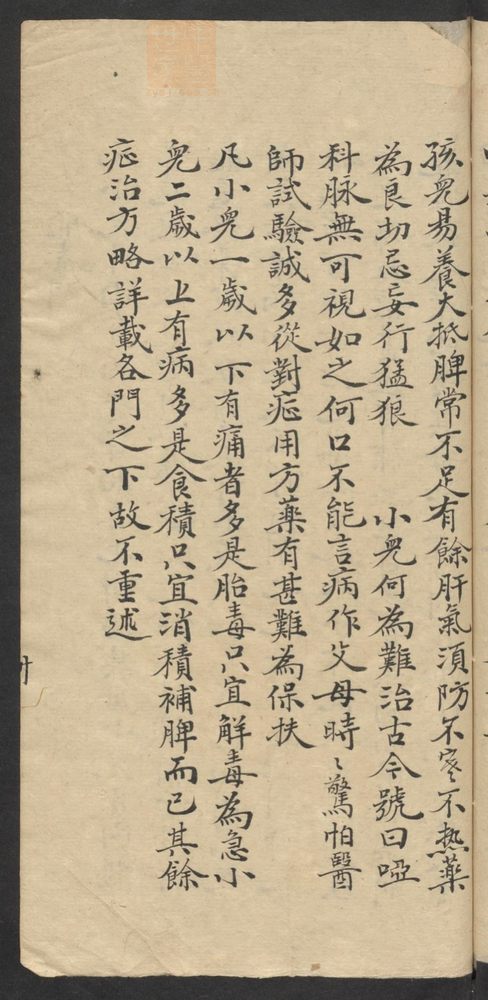 孩兒易養大抵脾常不足有餘肝氣須防不寒不热藥
為良切忌妄行猛狼　小兒何為難治古今號曰啞
科脉無可視如之何口不能言病作父母時〻驚怕醫
師試驗誠多從對症用方藥有甚難為保扶
凡小兒一歲以下有痛者多是胎毒只宜解毒為急小
兒二歲以上有病多是食積只宜消積補脾而已其餘
症治方略詳載各門之下故不重述